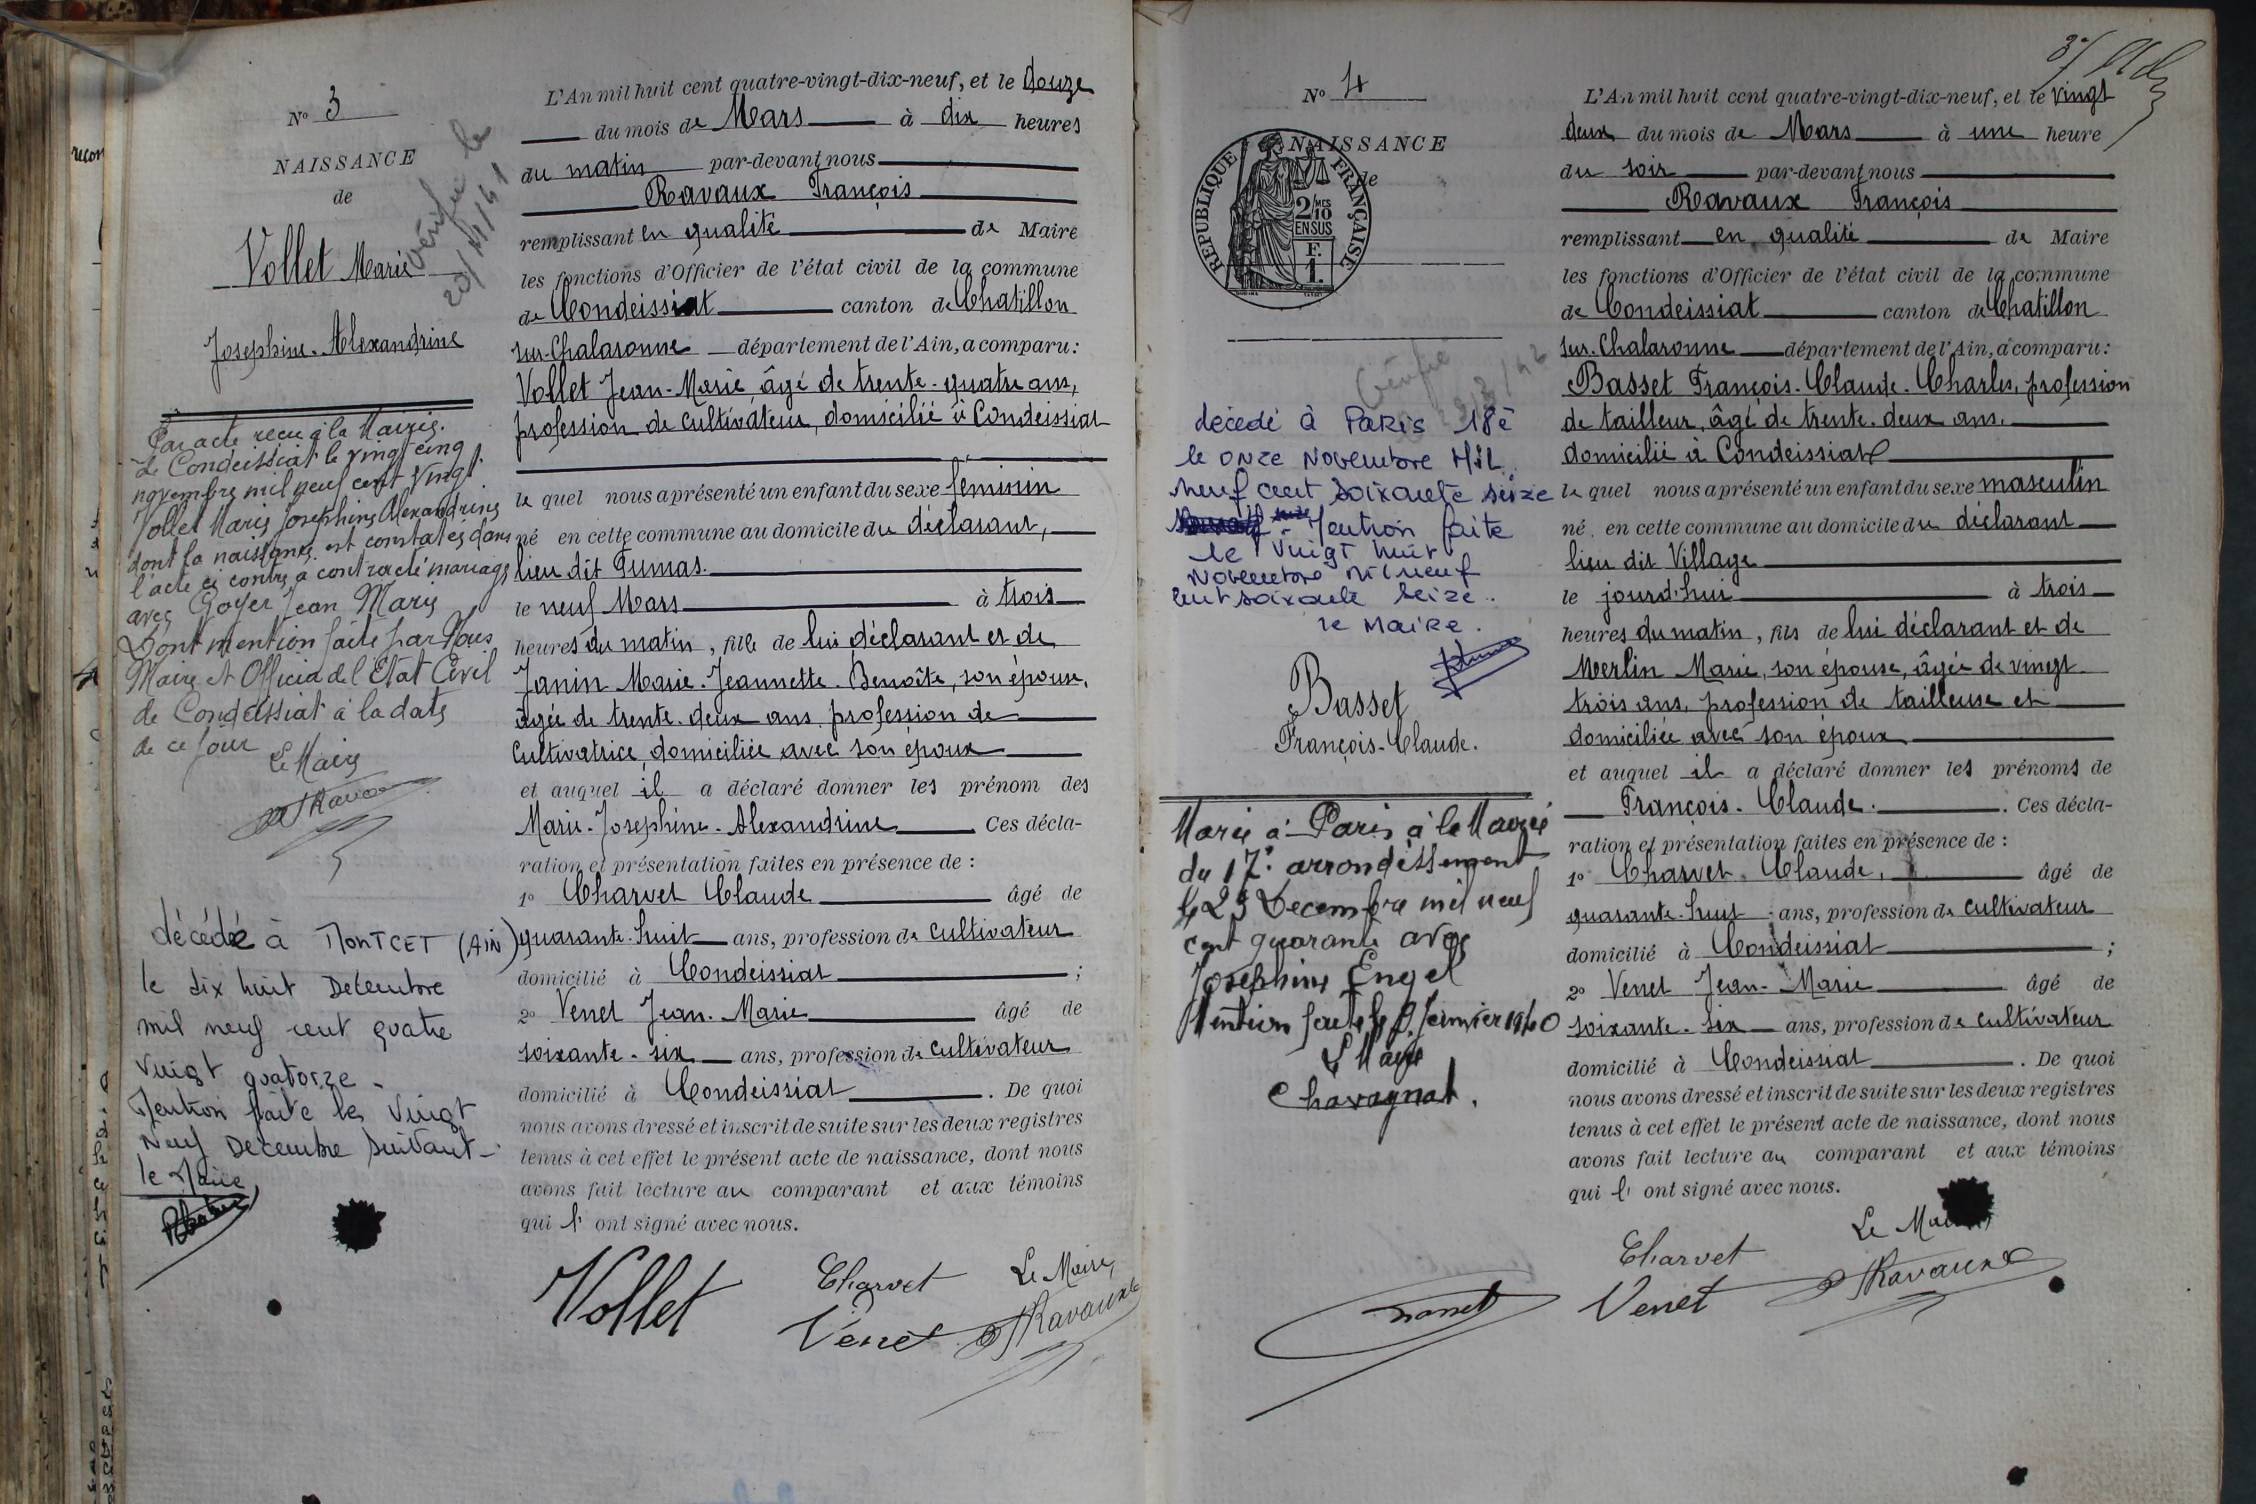 N° 3
NAISSANCE
de
Vollet Marie
Josephine-Alexandrine
vérifié le
20/11/41
Par acte recu à la Mairie
de Condeissiat le vingt cinq
novembre mil neuf cent vingt
Vollet Marie Josephine Alexandrine
dont la naissance est constatée dans
l'acte ci contre a contracté mariage
avec Goyer Jean Marie
Dont mention faite par Nous
Maire et Officier de l'Etat Civil
de Condeissiat à la date
de ce jour
Le Maire
Ravaux
décédée à MONTCET (AIN)
le dix huit Decembre
mil neuf cent quatre
vingt quatorze -
Mention faite les vingt
Neuf Decembre suivant -
le Maire
L'An mil huit cent quatre-vingt-dix-neuf, et le douze
du mois de Mars à dix heures
du matin par-devant nous
Ravaux François
remplissant en qualité de Maire
les fonctions d'Officier de l'état civil de la commune
de Condeissiat canton de Chatillon
sur-Chalaronne département de l'Ain, a comparu:
Vollet Jean-Marie, âgé de trente-quatre ans,
profession de cultivateur, domicilié à Condeissiat
le quel nous a présenté un enfant du sexe féminin
né en cette commune au domicile du déclarant,
lieu dit Dumas.
le neuf Mars à trois
heures du matin, fille de lui déclarant et de
Janin Marie-Jeannette-Benoîte, son épouse,
âgée de trente-deux ans, profession de
cultivatrice, domiciliée avec son époux
et auquel il a déclaré donner les prénom des
Marie-Josephine-Alexandrine Ces décla-
ration et présentation faites en présence de :
1° Charvet Claude âgé de
quarante-huit ans, profession de cultivateur
domicilié à Condeissiat ;
2° Venet Jean-Marie âgé de
soixante-six ans, profession de cultivateur
domicilié à Condeissiat . De quoi
nous avons dressé et inscrit de suite sur les deux registres
tenus à cet effet le présent acte de naissance, dont nous
avons fait lecture au comparant et aux témoins
qui l' ont signé avec nous.
Vollet
Charvet
Venet
Le Maire,
Ravaux
N° 4
NAISSANCE
de
RÉPUBLIQUE FRANÇAISE
2/10 MES
EN SUS
F.
1.
Vérifié
décédé à PARIS 18è
le onze Novembre MIL
neuf cent soixante seize
Mention faite
le vingt huit
Novembre mil neuf
cent soixante seize.
le MAIRE.
Basset
François-Claude.
Marié à Paris à la Mairie
du 17e arrondissement
le 23 Decembre mil neuf
cent quarante avec
Josephine Engel
Mention faite le janvier 1940
Le Maire
Chavagnat.
L'An mil huit cent quatre-vingt-dix-neuf, et le vingt
deux du mois de Mars à une heure
du soir par-devant nous
Ravaux François
remplissant en qualité de Maire
les fonctions d'Officier de l'état civil de la commune
de Condeissiat canton de Chatillon
sur-Chalaronne département de l'Ain, a comparu:
Basset François-Claude-Charles, profession
de tailleur, âgé de trente-deux ans.
domicilié à Condeissiat
le quel nous a présenté un enfant du sexe masculin
né en cette commune au domicile du déclarant
lieu dit Village
le jourd'hui à trois
heures du matin, fils de lui déclarant et de
Merlin Marie, son épouse, âgée de vingt-
trois ans, profession de tailleuse et
domiciliée avec son époux
et auquel il a déclaré donner les prénoms de
François-Claude. . Ces décla-
ration et présentation faites en présence de :
1° Charvet Claude, âgé de
quarante-huit ans, profession de cultivateur
domicilié à Condeissiat ;
2° Venet Jean-Marie âgé de
soixante-six ans, profession de cultivateur
domicilié à Condeissiat . De quoi
nous avons dressé et inscrit de suite sur les deux registres
tenus à cet effet le présent acte de naissance, dont nous
avons fait lecture au comparant et aux témoins
qui l' ont signé avec nous.
Charvet
Venet
Le Maire,
Ravaux